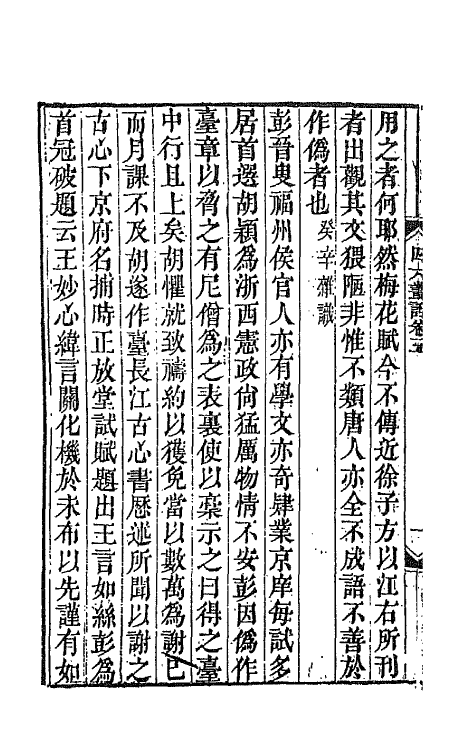 用之者何耶然梅花賦今不傳近徐子方以江右所刊
者出觀其文猥陋非惟不類唐人亦全不成語不善於
作僞者也癸辛雜識
彭晉叟福州侯官人亦有學文亦奇肄業京庠每試多
居首選胡穎爲浙西憲政尙猛厲物情不安彭因僞作
臺章以脅之有尼僧爲之表裏使以稾示之曰得之臺
中行且上矣胡懼就致禱約以獲免當以數萬爲謝已
而月課不及胡遂作臺長江古心書歷述所聞以謝之
古心下京府名捕時正放堂試賦題出王言如絲彭爲
首冠破題云王妙心緯言關化機於未布以先謹有如
四六叢話卷五